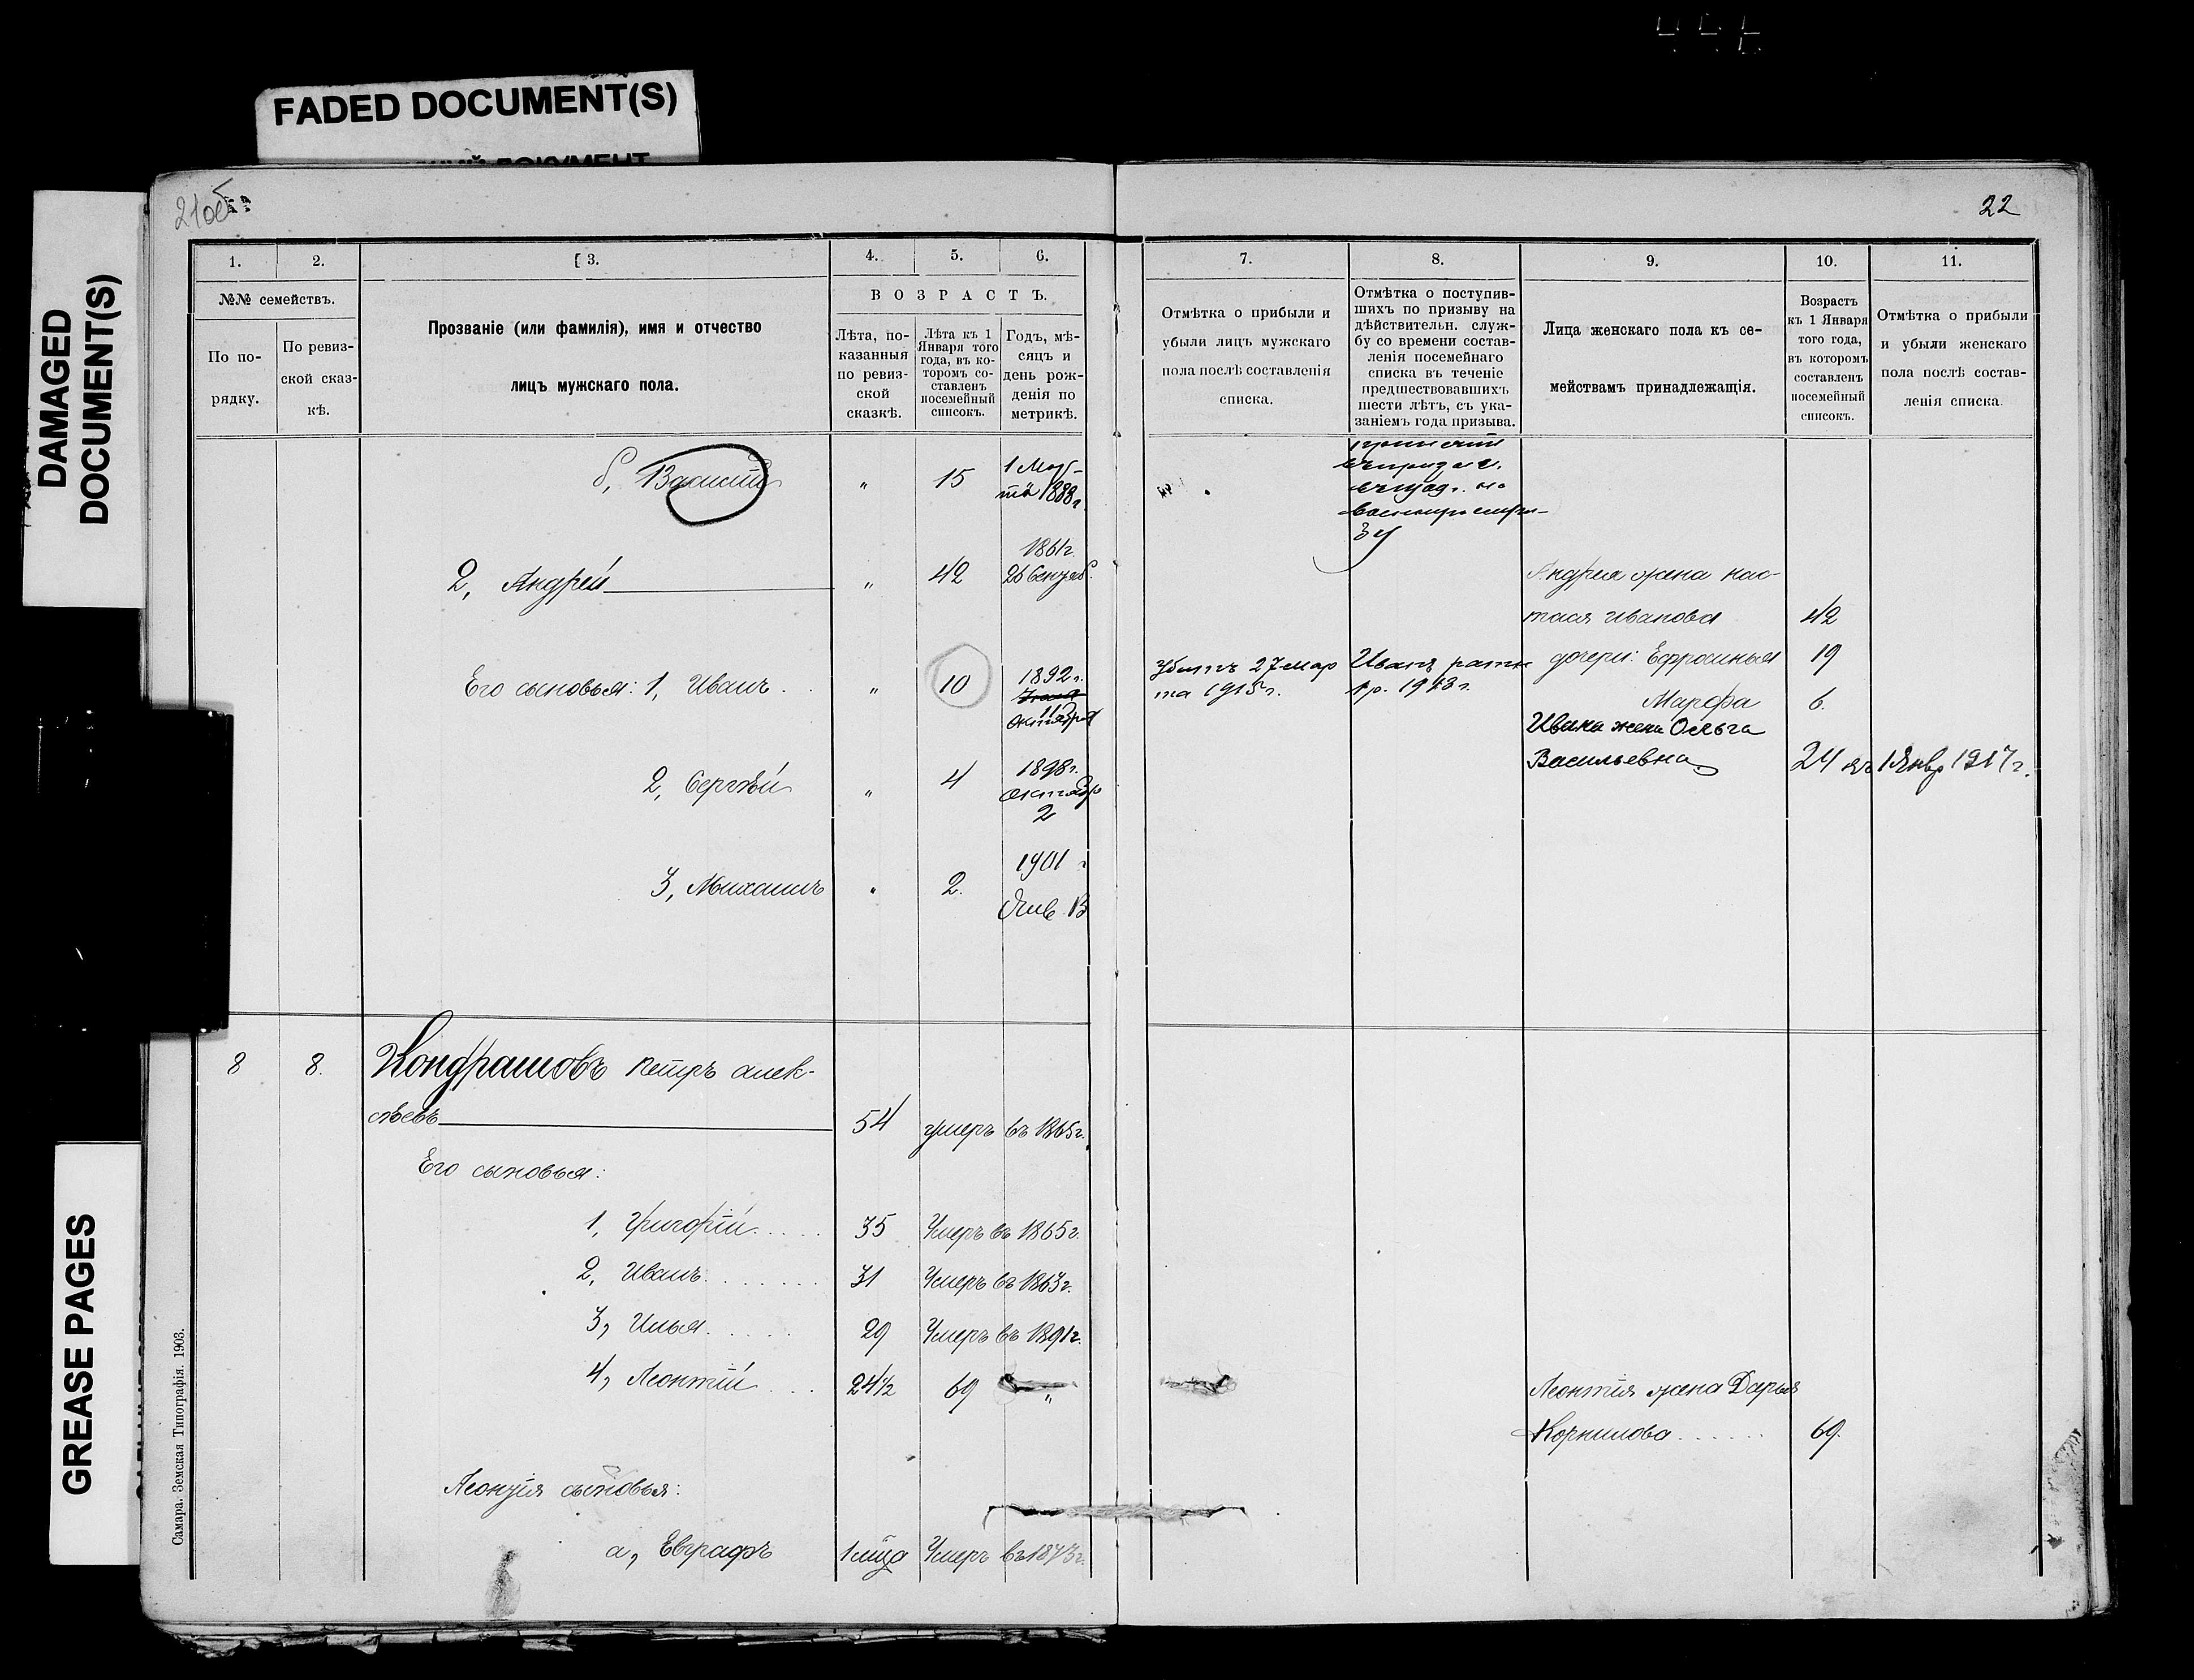 FADED DOCUMENT(S)
DAMAGED
DOCUMENT(S)
GREASE PAGES
21об
22
1.
2.
3.
4.
5.
6.
7.
8.
9.
10.
11.
№№ семействъ.
По по-
рядку.
По ревиз-
ской сказ-
кѣ.
Прозваніе (или фамилія), имя и отчество
лицъ мужскаго пола.
ВОЗРАСТЪ.
Лѣта, по-
казанныя
по ревиз-
ской
сказкѣ.
Лѣта къ 1
Января того
года, въ ко-
торомъ со-
ставленъ
посемейный
списокъ.
Годъ, мѣ-
сяцъ и
день рож-
денія по
метрикѣ.
Отмѣтка о прибыли и
убыли лицъ мужскаго
пола послѣ составленія
списка.
Отмѣтка о поступив-
шихъ по призыву на
дѣйствительн. служ-
бу со времени состав-
ленія посемейнаго
списка въ теченіе
предшествовавшихъ
шести лѣтъ, съ ука-
заніемъ года призыва.
Лица женскаго пола къ се-
мействамъ принадлежащія.
Возрастъ
къ 1 Января
того года,
въ которомъ
составленъ
посемейный
списокъ.
Отмѣтка о прибыли
и убыли женскаго
пола послѣ состав-
ленія списка.
б, „ 15 1 Мар-
та 1888г.
2, Андрей „ 42 1861г.
26 Сентяб.
Андрея жена Нас-
тася Иванова 42
Его сыновья: 1, Иванъ „ 10 1892г.
11
октября
Убитъ 27 мар
та 1915г.
Иванъ ратн
1р. 1913г.
дочери: Ефросинья 19
Марфа 6.
Ивана жена Ольга
Васильевна 24 къ 1 Янвр 1917г.
2, Сергѣй „ 4 1898г.
октябр
2
3, Михаилъ „ 2. 1901 г
8 8. Кондрашовъ Петръ Алек-
сѣевъ 54 умеръ въ 1865г.
Его сыновья:
1, Григорій 35 Умеръ въ 1865г.
2, Иванъ 31 Умеръ въ 1863г.
3, Илья 29 Умеръ въ 1891г.
4, Леонтій 24½ 69 „
Леонтія жена Дарья
Корнилова 69.
Леонтія сыновья:
а, Евграфъ Умеръ въ 1873г.
Самара. Земская Типографія. 1903.